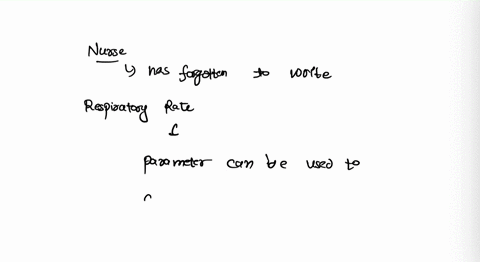 Nurse
↳ has forgotten to write
Respiratory Rate
↓
parameter can be used to